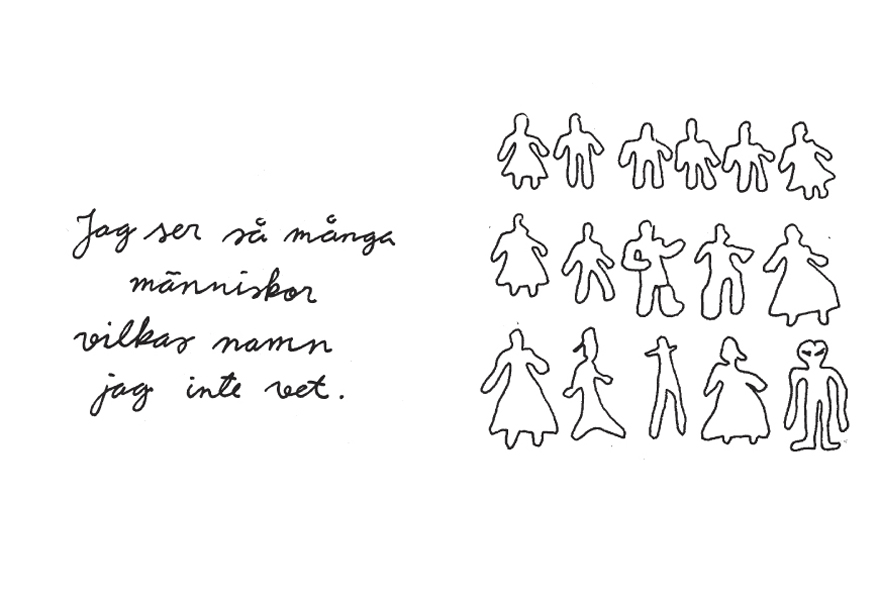 Jag ser så många
människor
vilkas namn
jag inte vet.